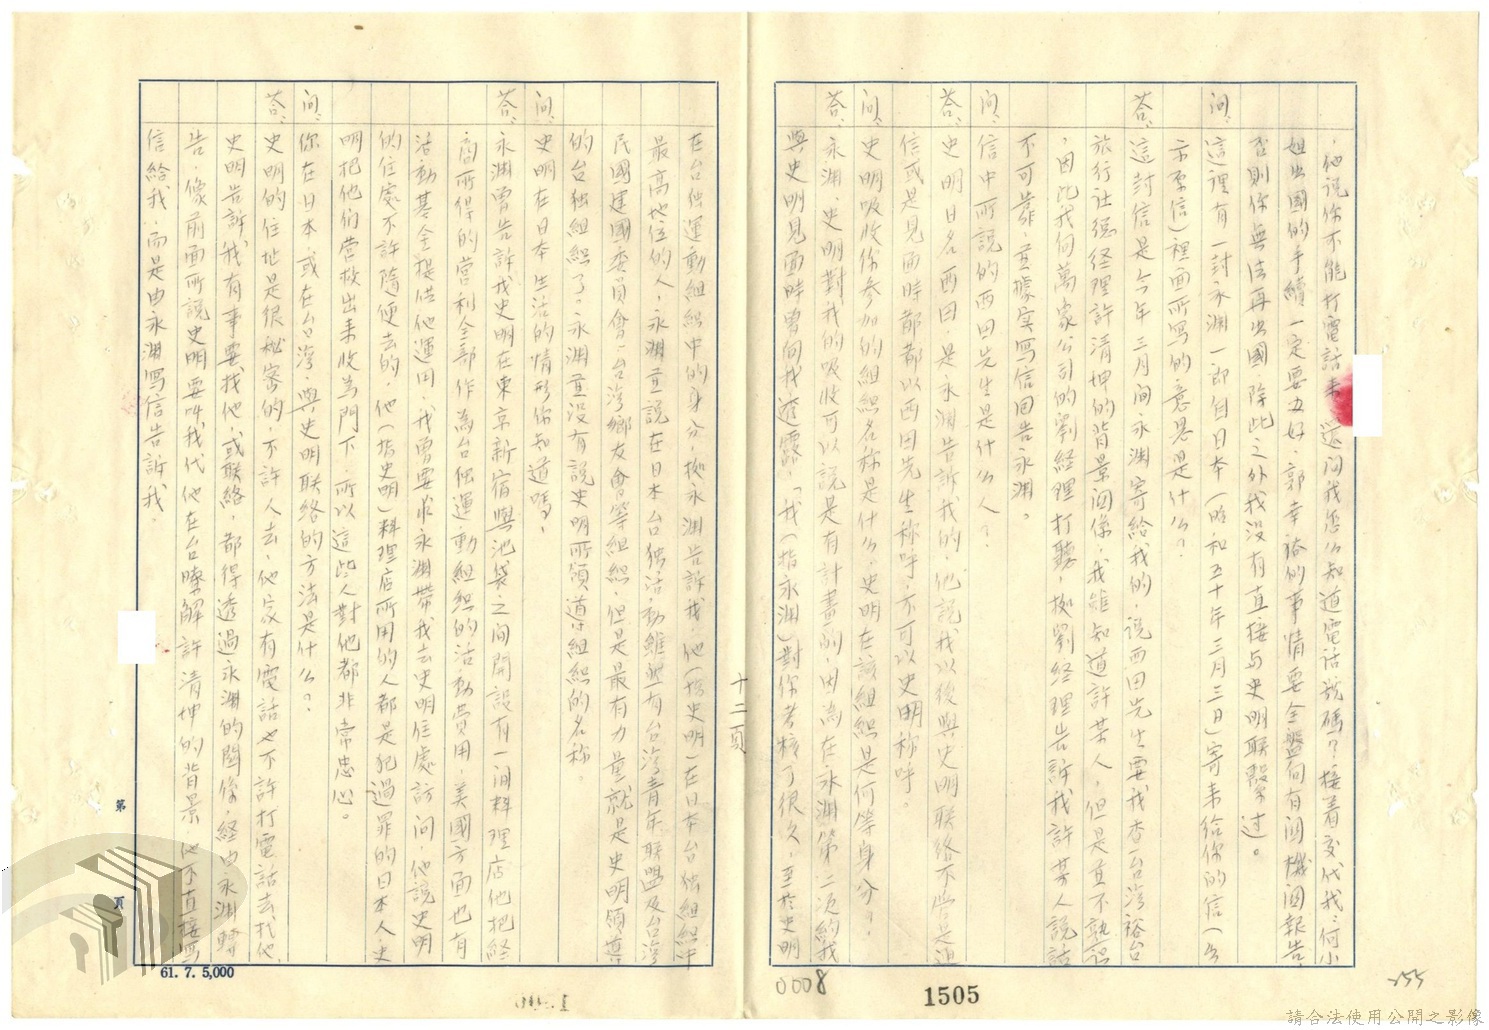 ，他說你不能打電話來，還问我怎么知道電话號碼？接着交代我：何小
姐出國的手續一定要办好，郭幸裕的事情要全盤向有関機関報告，
否則你無法再出國，除此之外我没有直接与史明联繫过。
问、這裡有一封永渊一郎自日本（昭和五十年三月三日）寄来给你的信（
示原信）裡面所寫的意思是什么？
答、這封信是今年三月间永渊寄給我的，说西田先生要我查台湾裕台
旅行社張経理許清坤的背景関係，我雖知道許某人，但是並不熟識
，因此我向萬家公司的劉経理打聽，拠劉経理告訴我許某人說話
不可靠，並據実寫信回告永渊。
问、信中所說的西田先生是什么人？
答、史明日名西田，是永渊告訴我的，他説我以後與史明联络不管是通
信或是見面時都都以西田先生称呼，不可以史明称呼。
问、史明吸收你参加的組織名称是什么，史明在該組織是何等身分？
答、永渊、史明對我的吸收可以說是有計畫的，因為在永渊第二次約我
與史明見面時曾向我透露，「我（指永渊）對你考核了很久，至於史明
十二頁
在台独運動組織中的身分，拠永渊告訴我，他（指史明）在日本台独組織中
最高地位的人，永渊並說在日本台独活動雖然有台湾青年联盟及台湾
民國建國委員會、台湾鄉友會等組織，但是最有力量就是史明領導
的台独組織了。永渊並没有說史明所領導組織的名称。
问、史明在日本生活的情形你知道嗎，
答、永渊曾告訴我史明在東京新宿與池袋之间開設有一间料理店他把経
商所得的営利全部作為台独運動組織的活動費用，美國方面也有
活動基金提供他運用，我曾要求永渊帶我去史明住處訪问，他說史明
的住處不許隨便去的，他（指史明）料理店所用的人都是犯過罪的日本人，史
明把他们营救出来收為門下，所以這些人對他都非常忠心。
问、你在日本，或在台湾，與史明联络的方法是什么？
答、史明的住地是很秘密的，不許人去，他家有電話也不許打電話去找他，
史明告訴我有事要找他，或联络，都得透過永渊的関係，経由永渊轉
告，像前面所說史明要叫我代他在台瞭解許清坤的背景，他不直接寫
信給我，而是由永渊寫信告訴我。
第　頁
61. 7. 5,000
0008
1505
255
請合法使用公開之影像